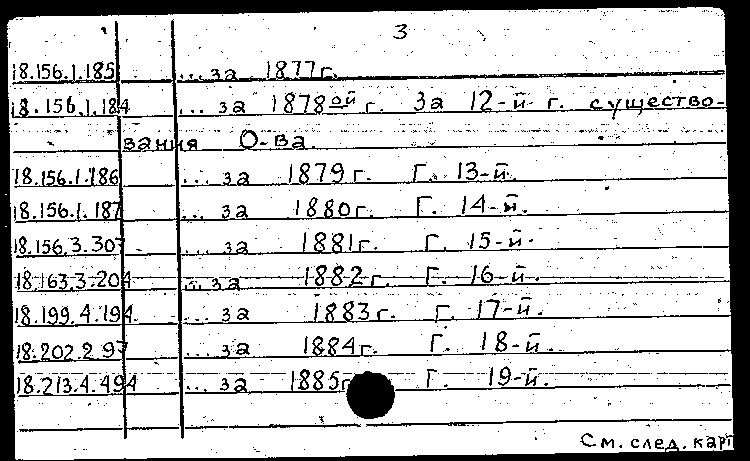 3
18.156.1.185 ...за 1877г.
18.156.1.184 ...за 1878ой г. За 12-й г. существо-
вания О-ва.
18.156.1.186 ...за 1879г. Г. 13-й.
18.156.1.187 ...за 1880г. Г. 14-й.
18.156.3.307 ...за 1881г. Г. 15-й.
18.163.3.204 ...за 1882г. Г. 16-й.
18.199.4.194 ...за 1883г. Г. 17-й.
18.202.2.97 ...за 1884г. Г. 18-й.
18.213.4.494 ...за 1885г Г. 19-й.
См. след. карт